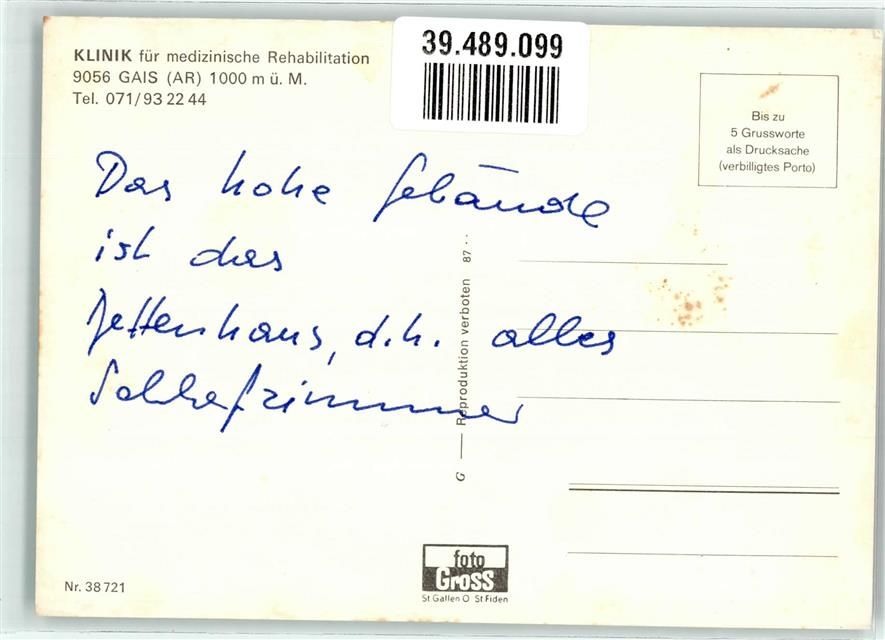 KLINIK für medizinische Rehabilitation
9056 GAIS (AR) 1000 m ü. M.
Tel. 071/93 22 44
39.489.099
Bis zu
5 Grussworte
als Drucksache
(verbilligtes Porto)
Das hohe Gebäude
ist das
Bettenhaus, d.h. alles
Schlafzimmer
G — Reproduktion verboten 87 ··
foto
Gross
St Gallen O St Fiden
Nr. 38 721